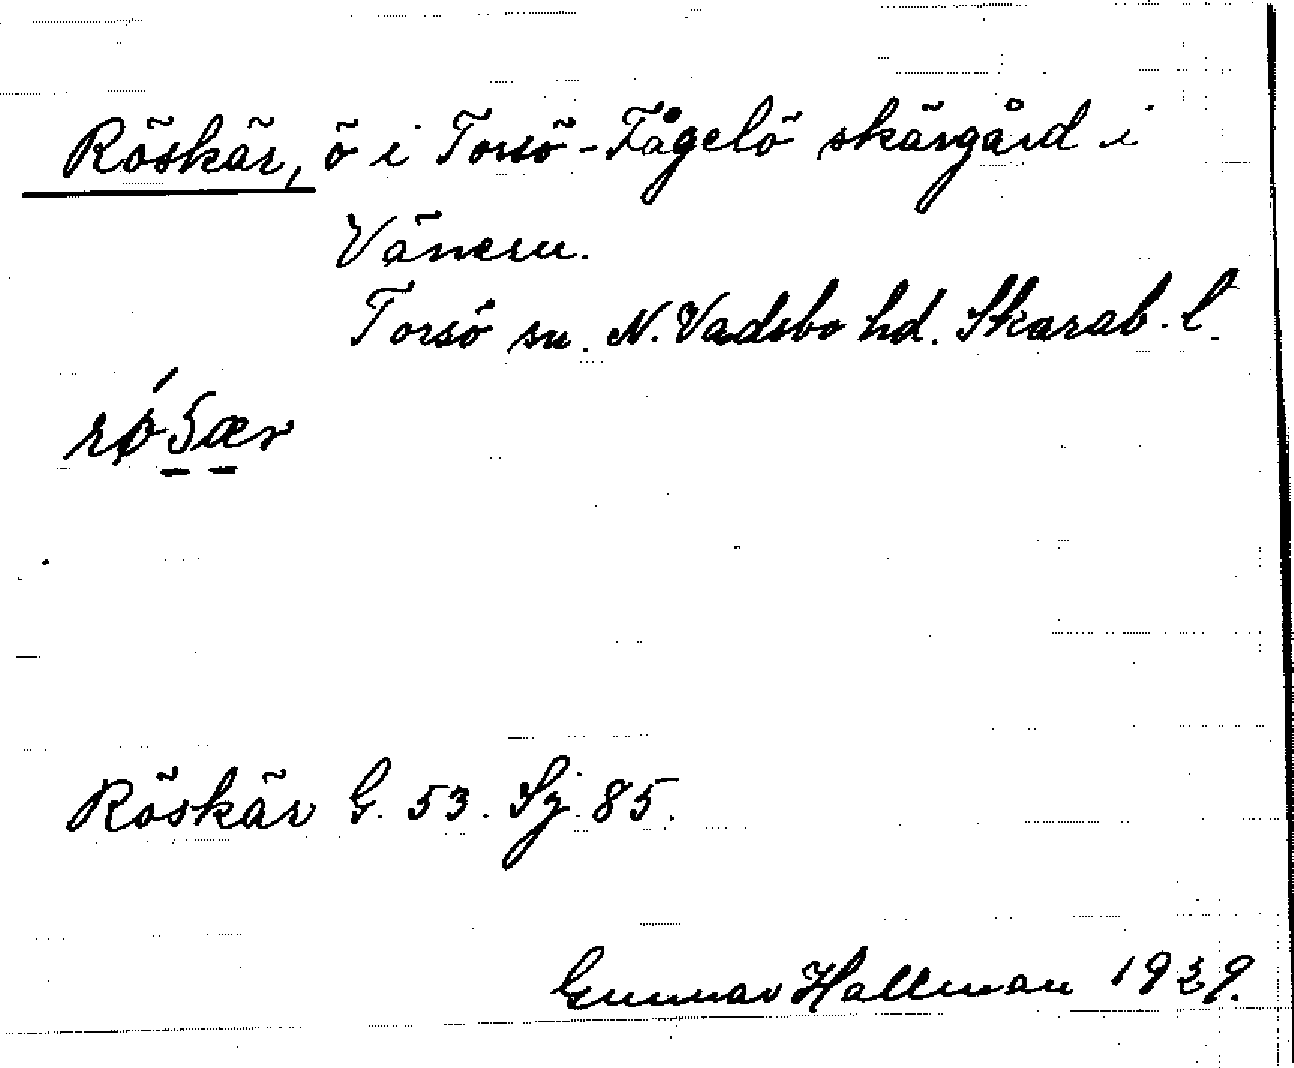 Röskär, ö i Torsö-Fågelö skärgård i
Vänern.
Torsö sn. N. Vadsbo hd. Skarab. l.
Röskär G. 53. Sj. 85.
Gunnar Hallman 1939.